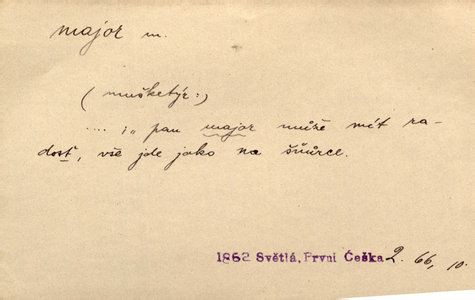 major m.
(mušketýr:)
.... i„ pan major může mít ra-
dost, vše jde jako na šňůrce.
1862 Světlá, První Češka 2. 66, 10.